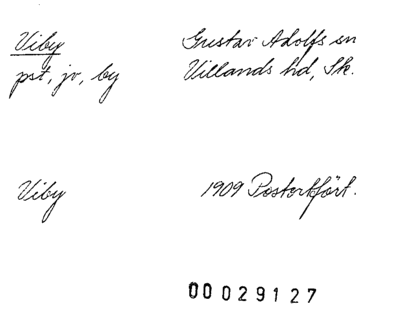 Viby
Gustav Adolfs sn
pst, jv, by
Villands hd, Sk.
Viby
1909 Postortfört.
00029127